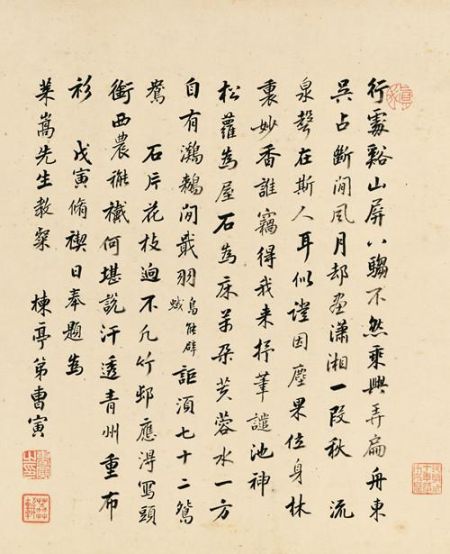 行處谿山屏八騶不然乘興弄扁舟東
吳占斷閒風月却畫瀟湘一段秋 流
泉聲在斯人耳似證因塵果位身林
裏妙香誰竊得我来抒筆譴池神
松蘿為屋石為床萬朵芙蓉水一方
自有鸂鶒閒戢羽鳥能辟蜮詎須七十二鴛
鴦 石片花枝迥不凡竹邨應得寫頭
銜西農褦襶何堪說汗透青州重布
衫 戊寅脩禊日奉題為
萊嵩先生教粲 楝亭弟曹寅